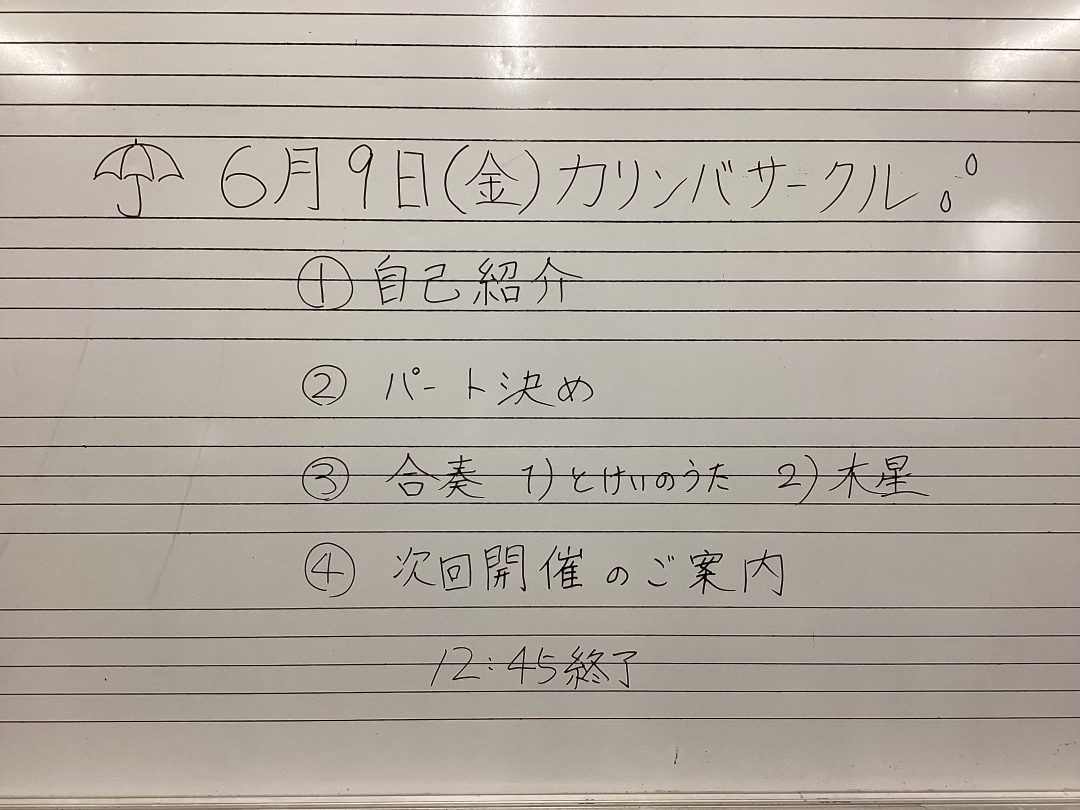 6月9日(金)カリンバサークル
① 自己紹介
② パート決め
③ 合奏 1)とけいのうた 2)木星
④ 次回開催のご案内
12:45終了